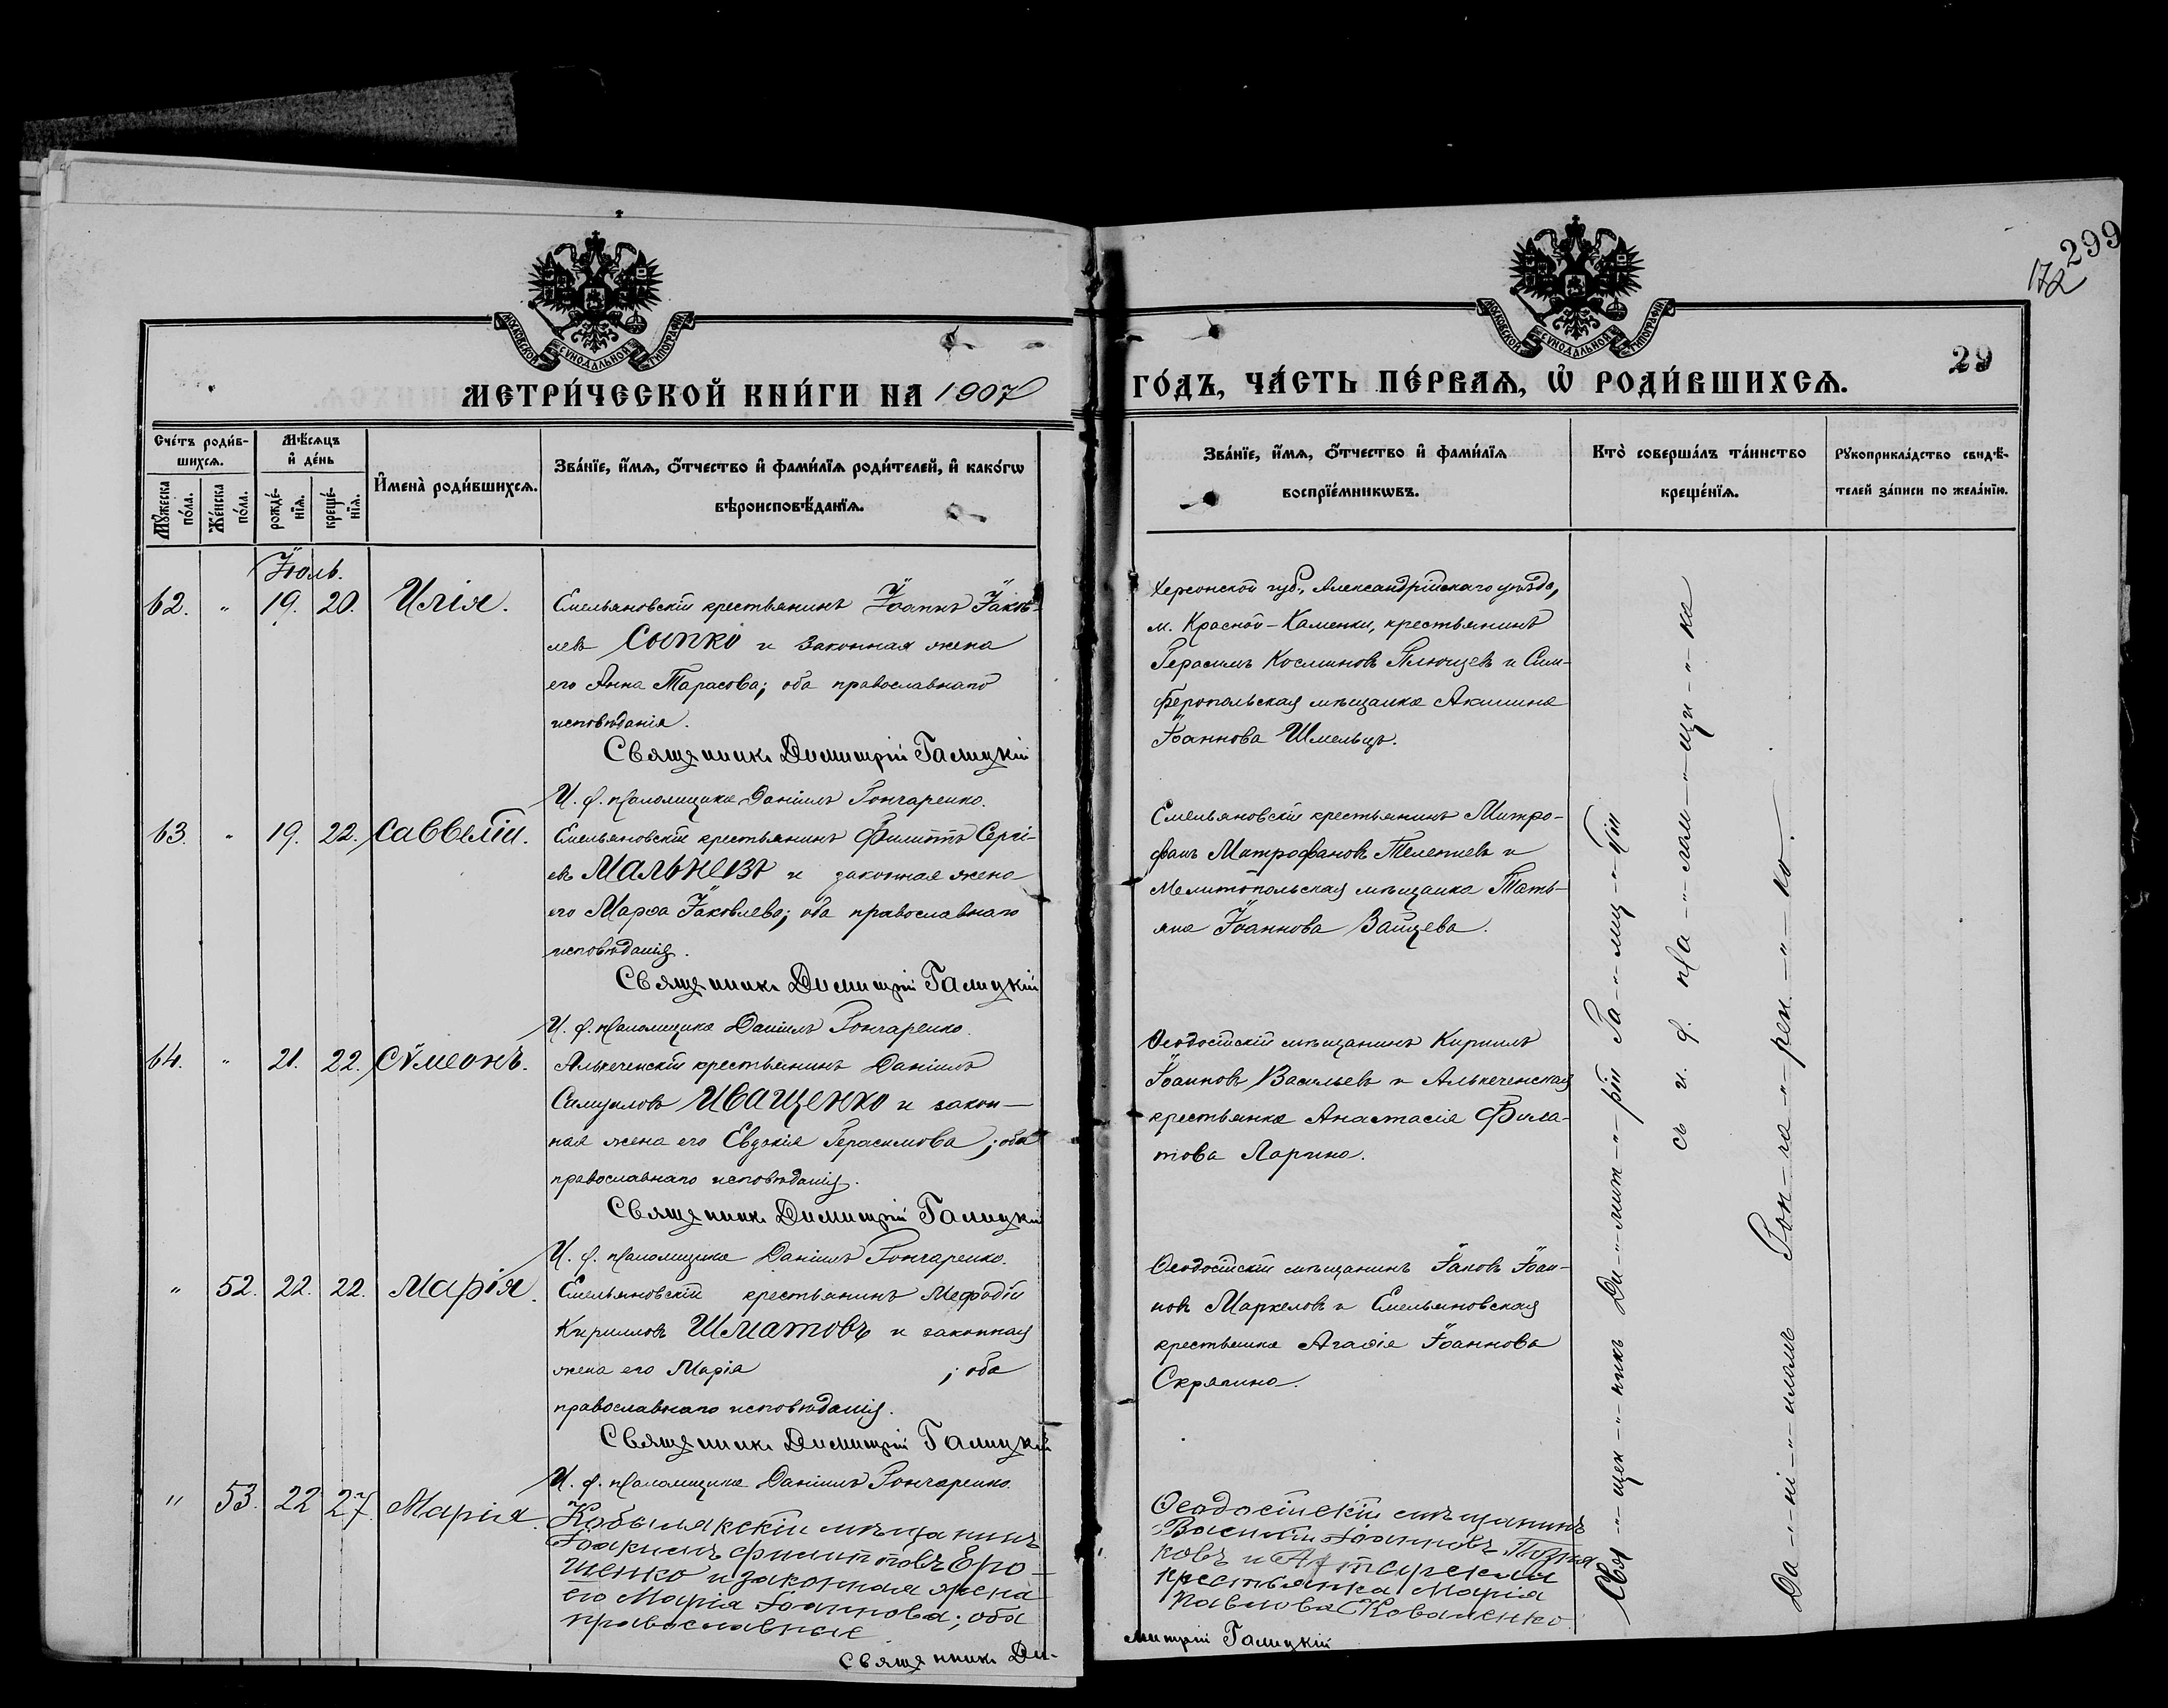 299
172
МОСКОВСКОЙ СѴНОДАЛЬНОЙ ТИПОГРАФІИ
МОСКОВСКОЙ СѴНОДАЛЬНОЙ ТИПОГРАФІИ
29
МЕТРИ́ЧЕСКОЙ КНИ́ГИ НА 1907
ГО́ДЪ, ЧА́СТЬ ПЕ́РВАѦ, Ѽ РОДИ́ВШИХСѦ.
Сче́тъ роди́в-
шихсѧ.
Мꙋ́жеска по́ла.
Же́нска по́ла.
Мѣ́сѧцъ
и҆ де́нь
рожде́-
нїѧ.
креще́-
нїѧ.
И҆мена̀ роди́вшихсѧ.
Зва́нїе, и҆́мѧ, ѻ҆́тчество и҆ фами́лїѧ роди́телей, и҆ како́гѡ
вѣроисповѣ́данїѧ.
Зва́нїе, и҆́мѧ, ѻ҆́тчество и҆ фами́лїѧ
воспрїе́мникѡвъ.
Кто̀ соверша́лъ та́инство
креще́нїѧ.
Рꙋкоприкла́дство свидѣ́-
телей за́писи по жела́нїю.
Іюль.
62. " 19. 20. Илія.
Емельяновскій крестьянинъ Іоаннъ Іаков-
левъ Сыпко и законная жена
его Анна Тарасова; оба православнаго
исповѣданія.
Священникъ Димитрій Галицкій
И. ф. псаломщика Даніилъ Гончаренко.
Херсонской губ., Александрійскаго уѣзда,
м. Красной-Каменки, крестьянинъ
Герасимъ Косминовъ и Сим-
феропольская мѣщанка Акилина
Іоаннова Шмельцъ.
63. " 19. 22. Савелій.
Емельяновскій крестьянинъ Филиппъ Сергі-
евъ Мальневъ и законная жена
его Марѳа Іаковлева; оба православнаго
исповѣданія.
Священникъ Димитрій Галицкій
И. ф. псаломщика Даніилъ Гончаренко.
Емельяновскій крестьянинъ Митро-
фанъ Митрофановъ и
Мелитопольская мѣщанка Тать-
яна Іоаннова Зайцева.
64. " 21. 22. Сѵмеонъ.
Алькеченскій крестьянинъ Даніилъ
Самуиловъ Иващенко и закон-
ная жена его Евдокія Герасимова; оба
православнаго исповѣданія.
Священникъ Димитрій Галицкій
И. ф. псаломщика Даніилъ Гончаренко.
Ѳеодосійскій мѣщанинъ Кириллъ
Іоанновъ Васильевъ и Алькеченская
крестьянка Анастасія Фила-
това Ларина.
" 52. 22. 22. Марія.
Емельяновскій крестьянинъ Мефодій
Кирилловъ Шматовъ и законная
жена его Марія ; оба
православнаго исповѣданія.
Священникъ Димитрій Галицкій
И. ф. псаломщика Даніилъ Гончаренко.
Ѳеодосійскій мѣщанинъ Іаковъ Іоан-
новъ Маркеловъ и Емельяновская
крестьянка Агафія Іоаннова
Скрягина.
" 53. 22 27. Марія.
Кобылякскій мѣщанинъ
Іоакимъ Филипповъ Еро-
шенко и законная жена
его Марія Іоаннова; оба
православные
Священникъ Ди-
Ѳеодосійскій мѣщанинъ
Василій Іоанновъ
ковъ и
крестьянка Марія
Павлова Коваленко.
митрій Галицкій
Свя-"-щен-"-никъ Ди-"-мит-"-рій Га-"-лиц-"-кій
съ и. ф. пса-"-лом-"-щи-"-ка
Да-"-ні-"-иломъ Гон-"-ча-"-рен-"-ко.